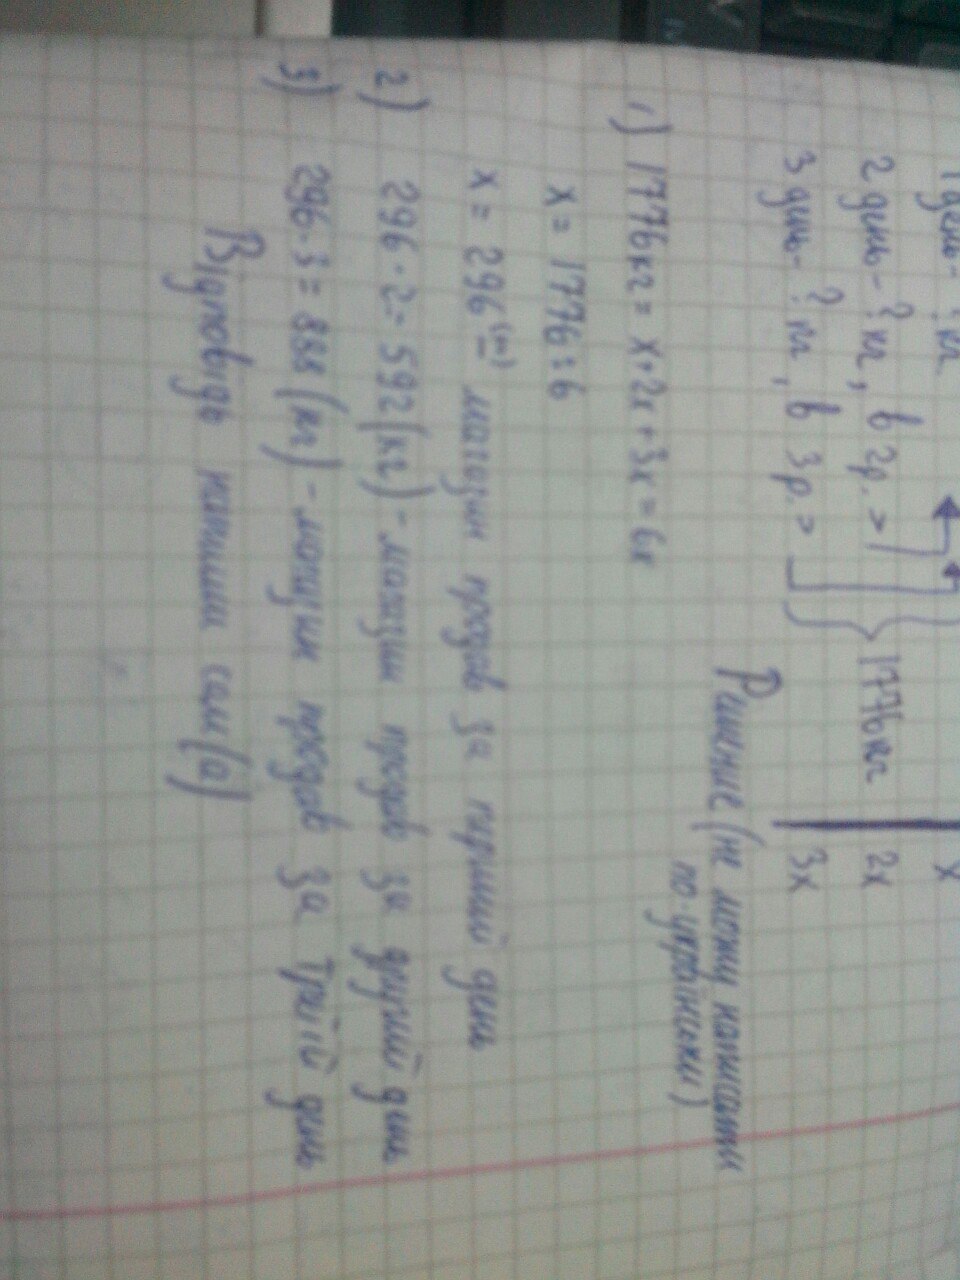 1 день - ? кг
х
2 день - ? кг, в 2р. >
1776 кг
2х
3 день - ? кг, в 3р. >
3х
Решение (не можу написати
по-українськи)
1) 1776кг = х+2х+3х = 6х
х = 1776:6
х = 296 магазин продав за перший день
2) 296·2=592(кг) - магазин продав за другий день
3) 296·3=888(кг) - магазин продав за трейій день
Відповідь напиши сам(а)